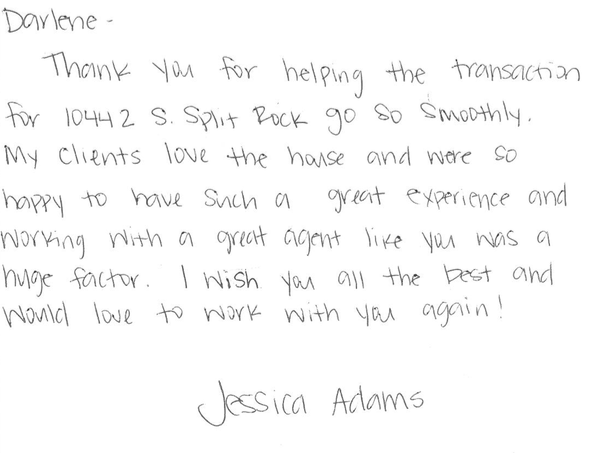 Darlene -
Thank you for helping the transaction
for 10442 S. Split Rock go so smoothly.
My clients love the house and were so
happy to have such a great experience and
working with a great agent like you was a
huge factor. I wish you all the best and
would love to work with you again!
Jessica Adams